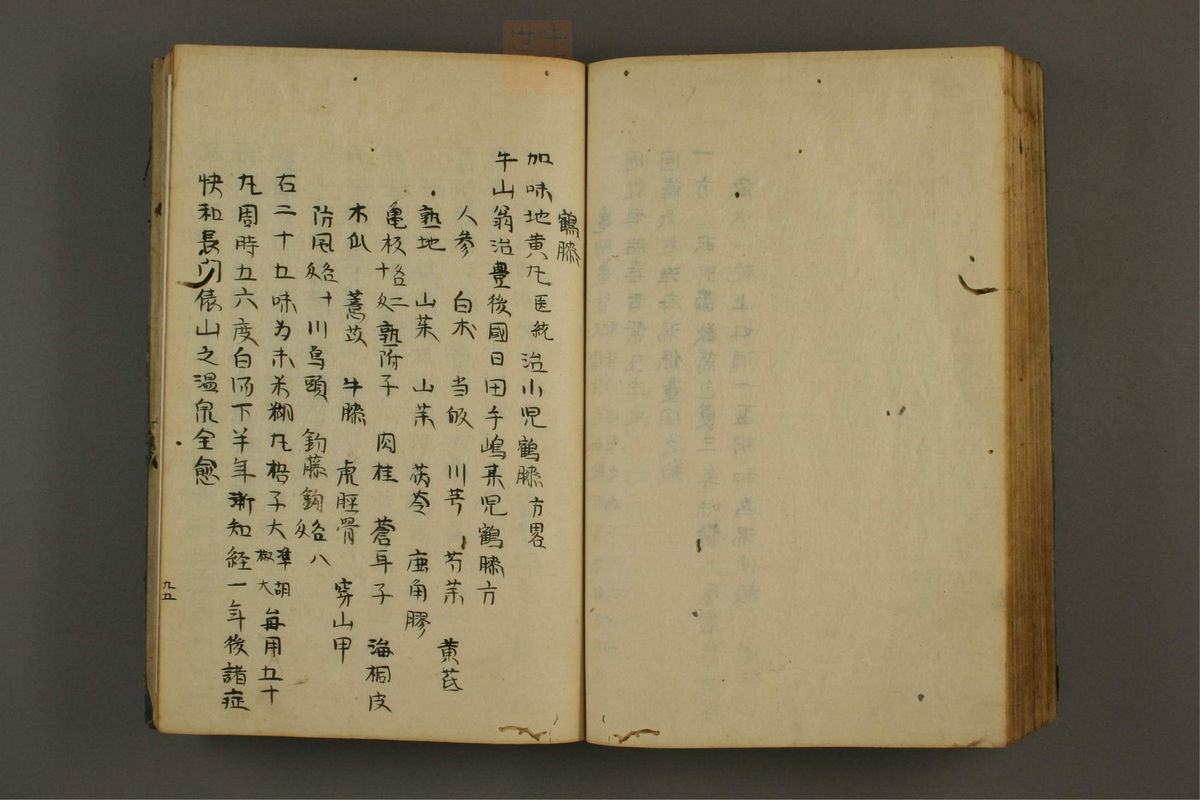 鶴膝
加味地黄丸医統治小児鶴膝方畧
牛山翁治豊後國日田手嶋某児鶴膝方
人参 白朮 当皈 川芎 芍薬 黄芪
熟地 山茱 山薬 茯苓 鹿角膠
亀板各二十匁 熟附子 肉桂 蒼耳子 海桐皮
木瓜 薏苡 牛膝 虎脛骨 穿山甲
防風各十匁 川烏頭 釣藤鈎各八匁
右二十五味为末米糊丸梧子大準胡椒大毎用五十
丸周時五六度白湯下半年漸知経一年後諸症
快和長門俵山之温泉全愈
九五